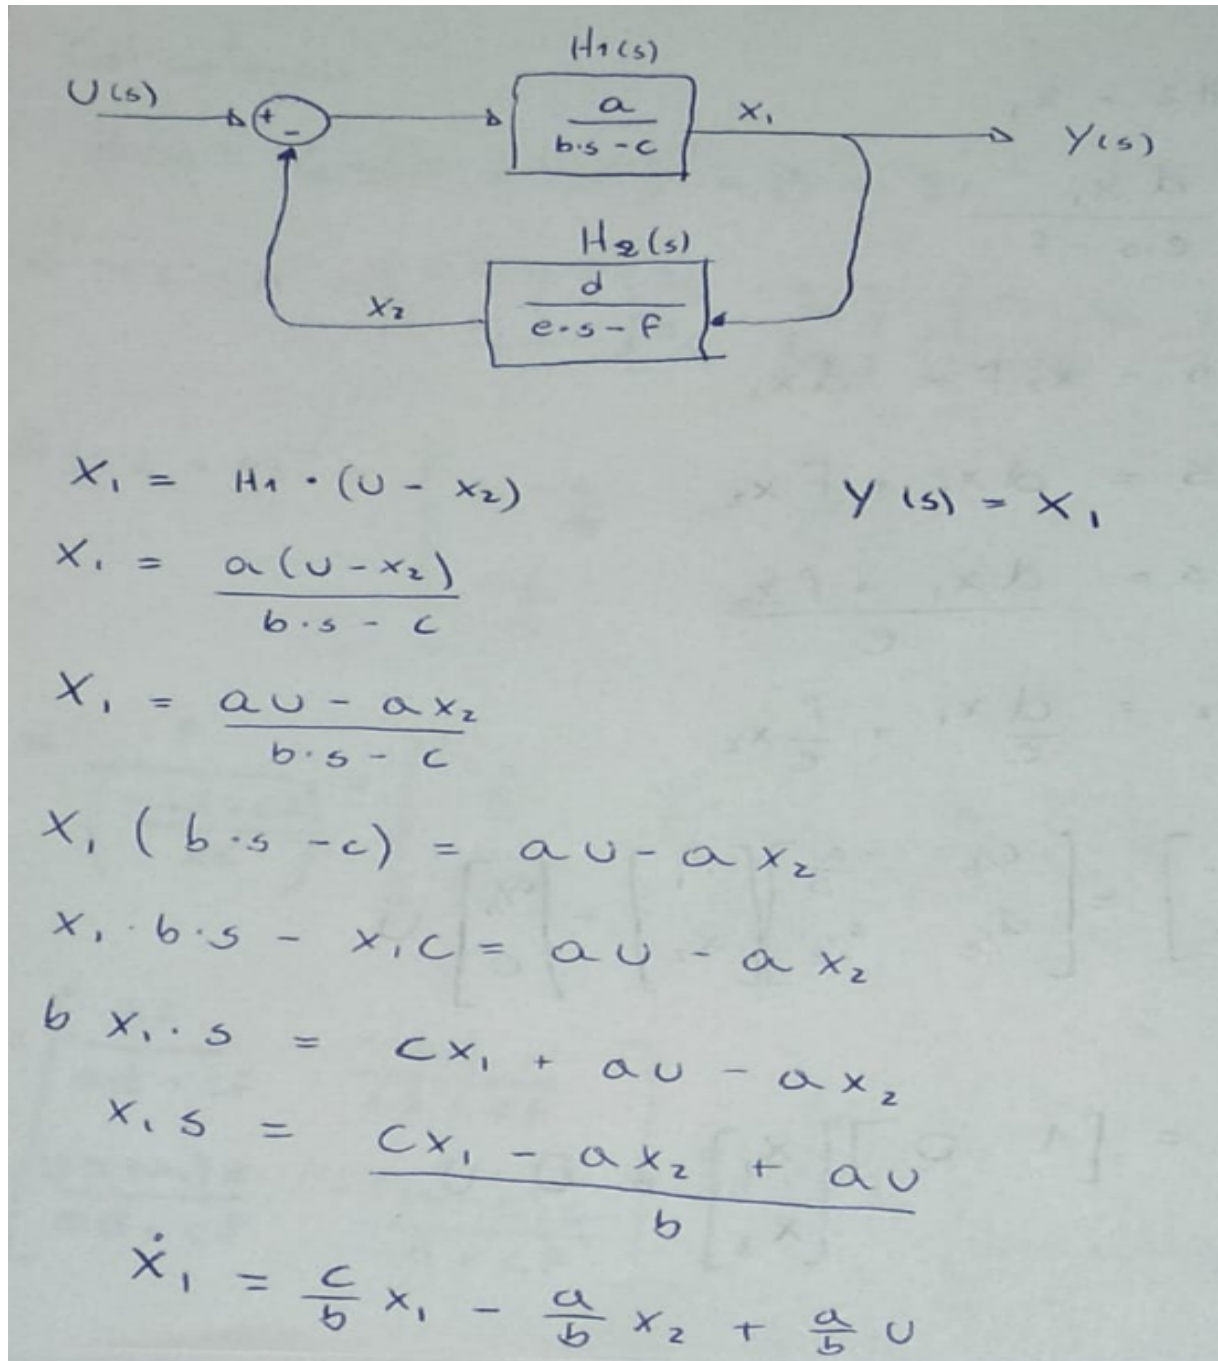 H1(s)
U(s) + - a / b·s - c X₁ Y(s)
H2(s)
X₂ d / e·s - f
X₁ = H1 · (U - X₂) Y(s) = X₁
X₁ = a(U - X₂) / b·s - c
X₁ = aU - aX₂ / b·s - c
X₁ (b·s - c) = aU - aX₂
X₁·b·s - X₁c = aU - aX₂
b X₁·s = cX₁ + aU - aX₂
X₁s = cX₁ - aX₂ + aU / b
Ẋ₁ = c/b X₁ - a/b X₂ + a/b U